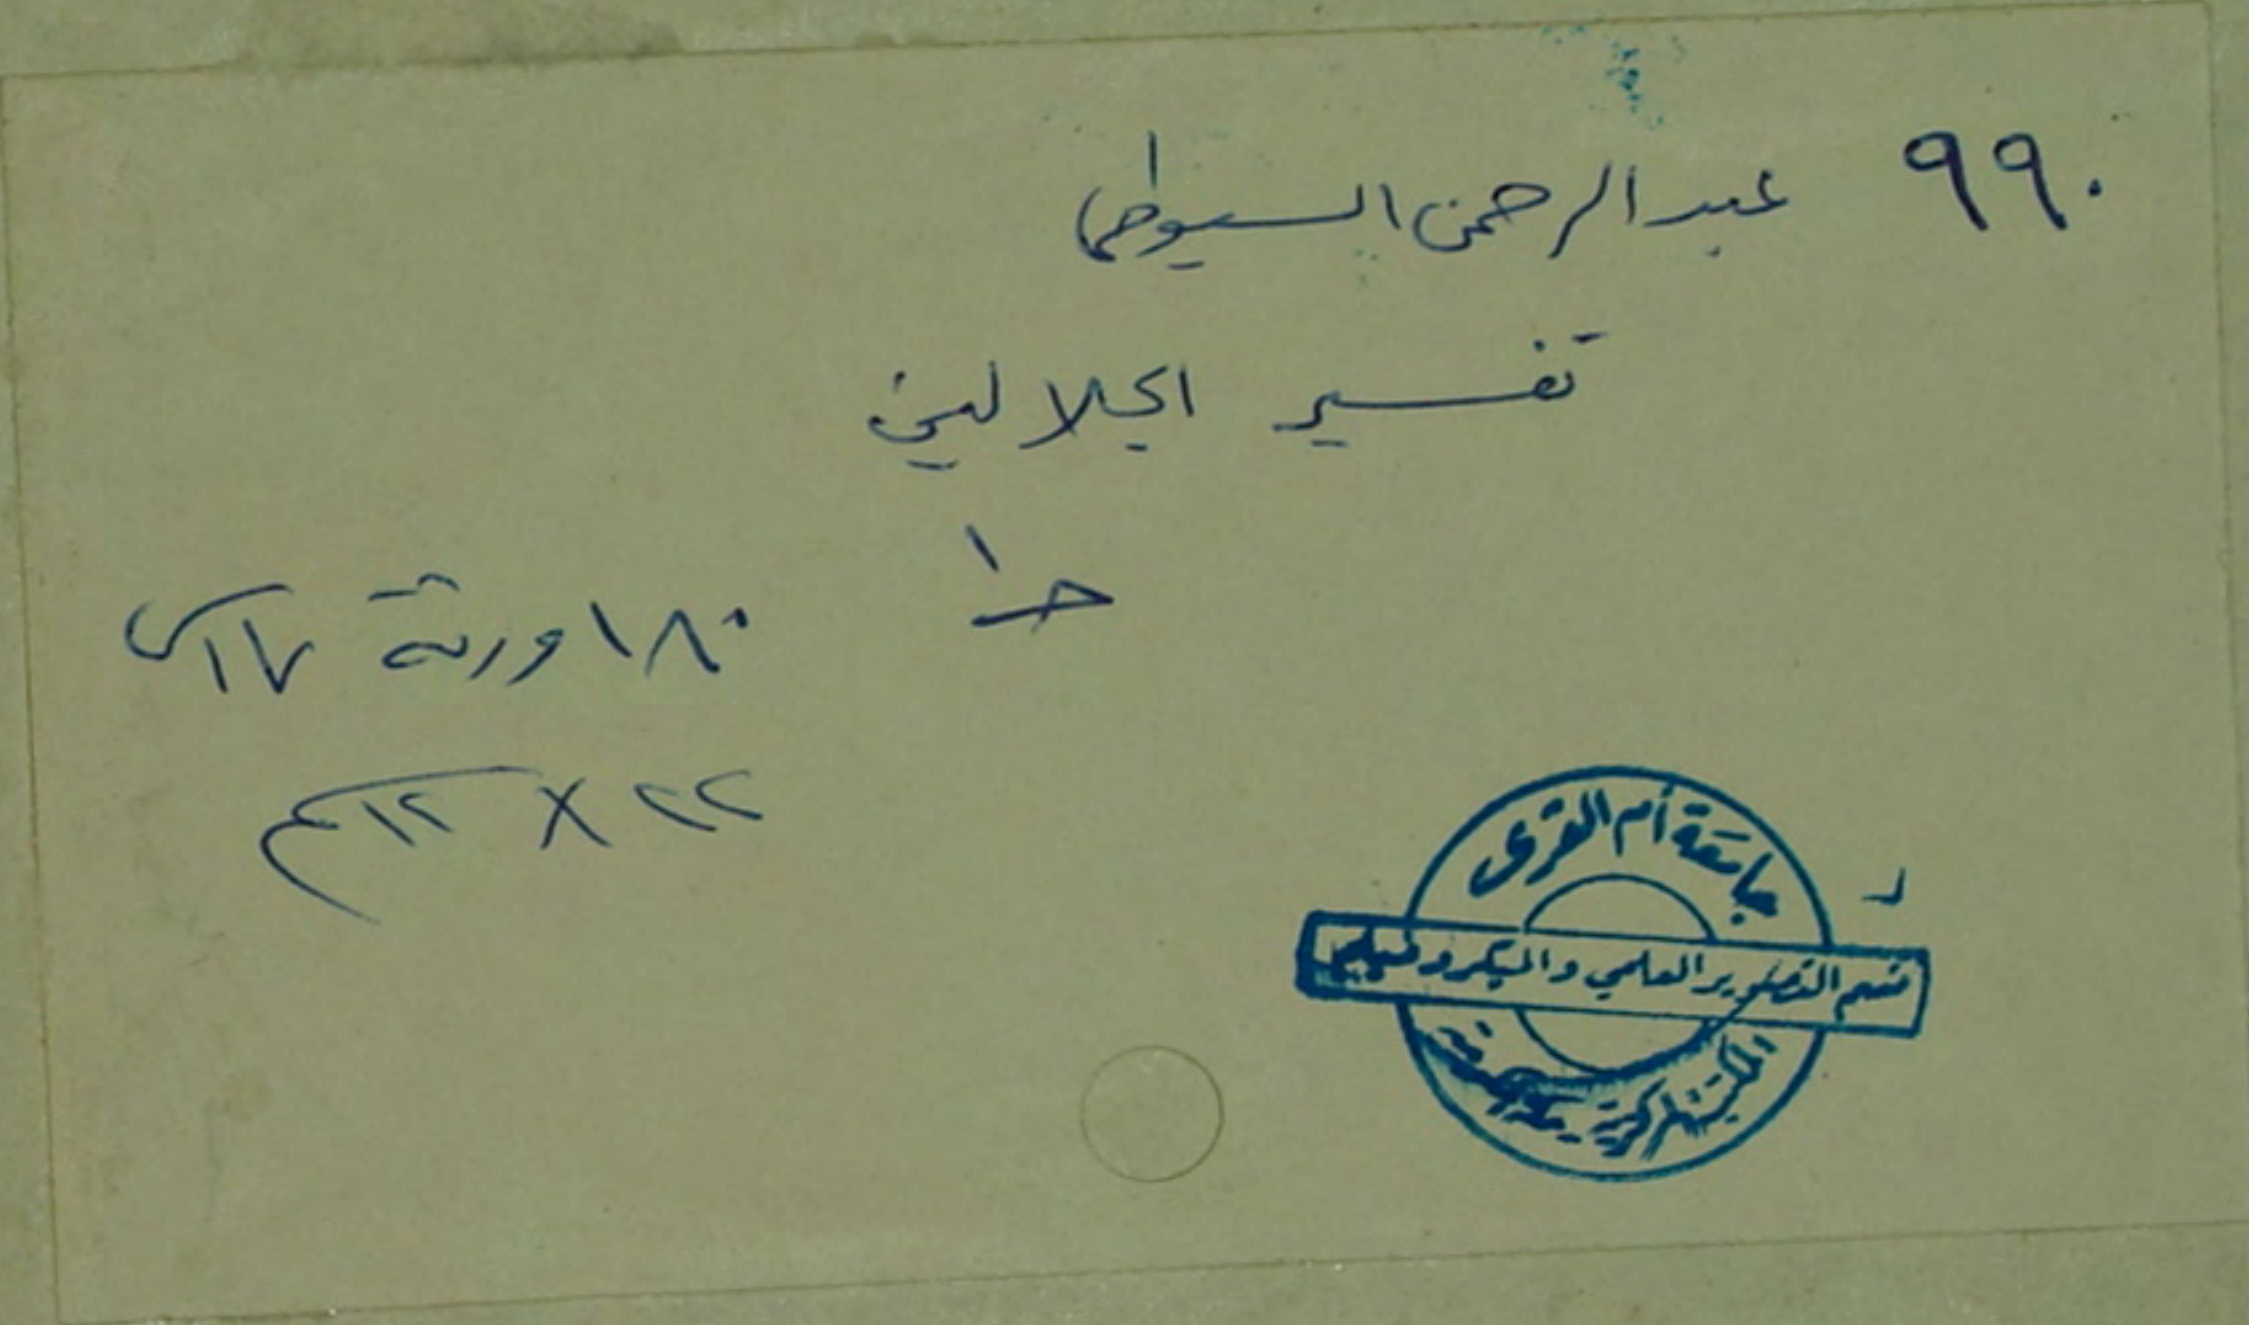 ٩٩٠ عبد الرحمن السيوطي
تفسير الجلالين
ج١
١٨٠ ورقة ١٧ س
٢٢ × ١٢ سم
جامعة أم القرى
قسم التصوير العلمي والميكروفيلمي
المكتبة المركزية - مكة